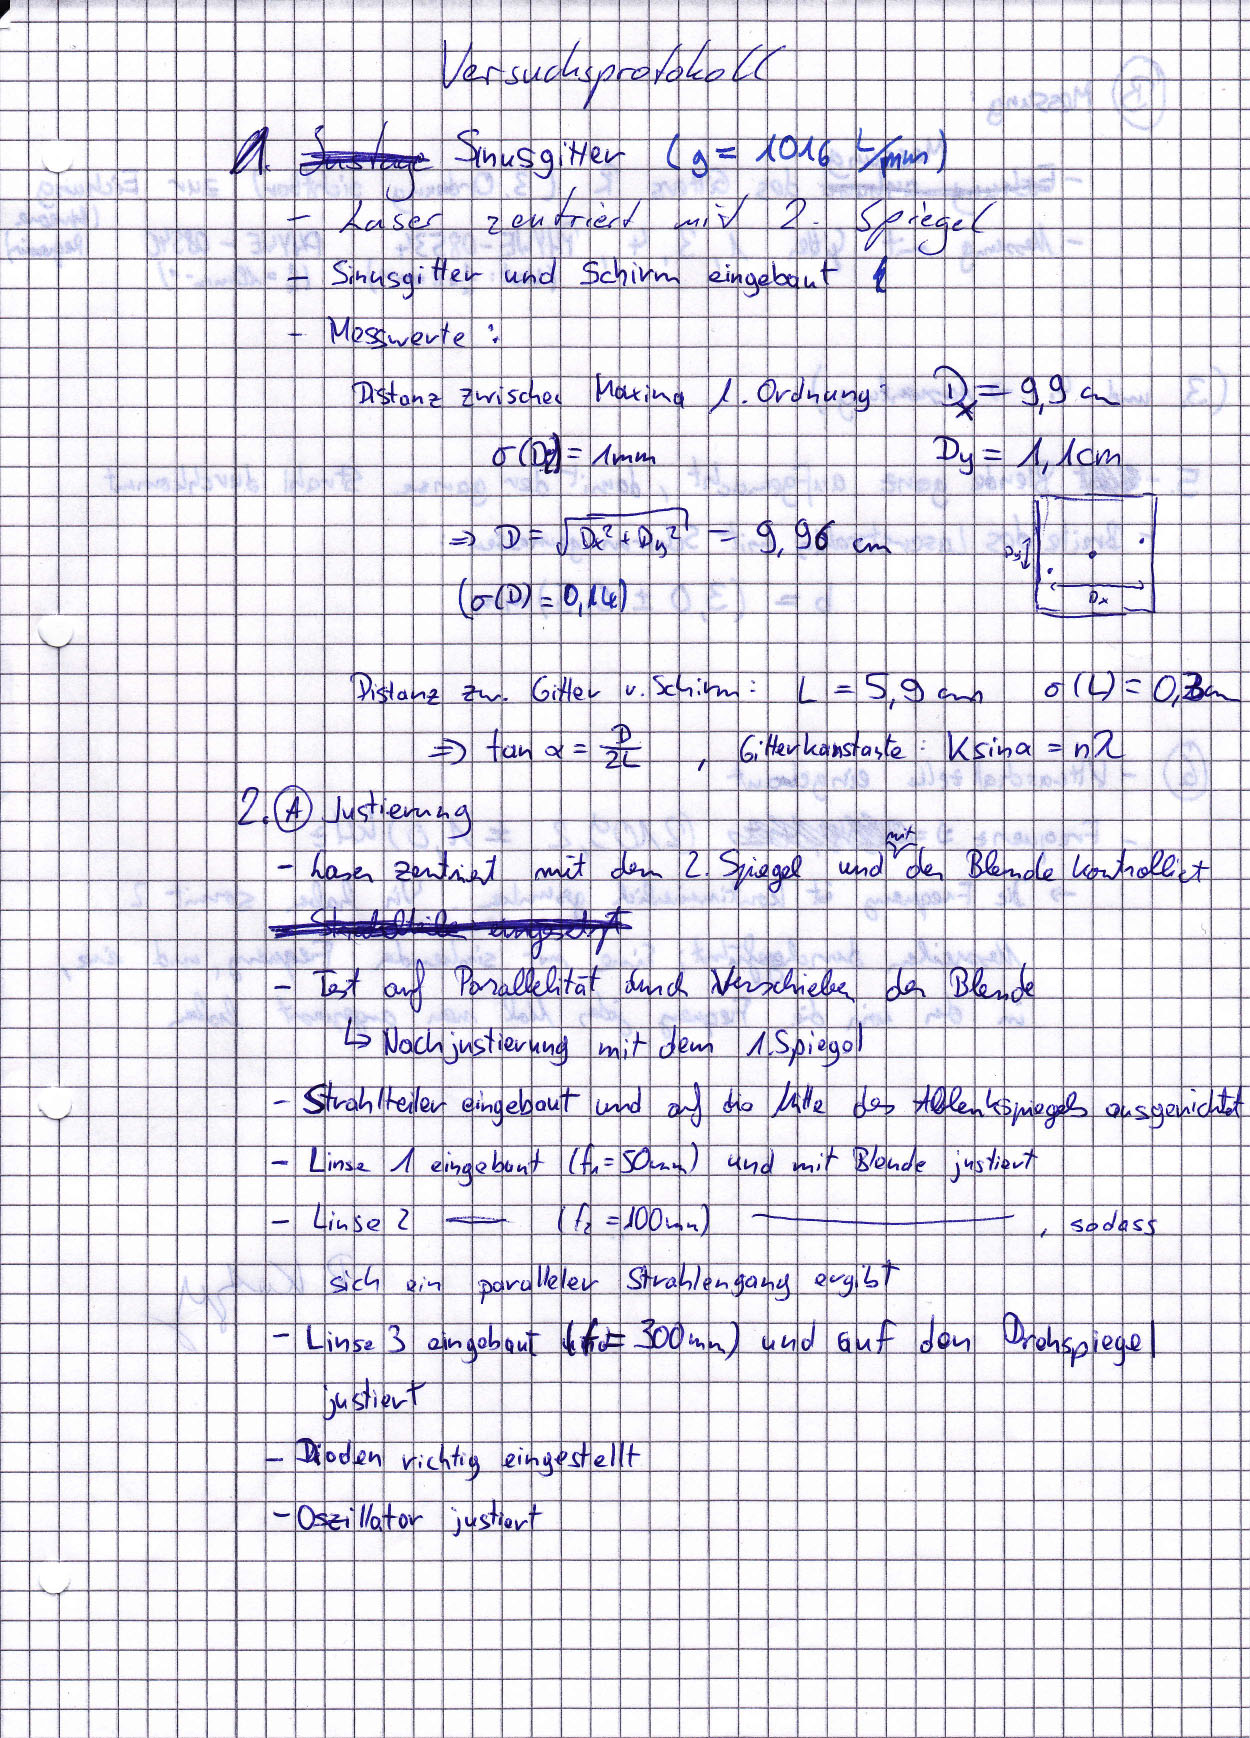 Versuchsprotokoll
1. Justage Sinusgitter (g = 1016 L/mm)
- Laser zentriert mit 2. Spiegel
- Sinusgitter und Schirm eingebaut
- Messwerte:
Distanz zwischen Maxima 1. Ordnung: Dx = 9,9 cm
σ(D) = 1mm Dy = 1,1cm
⇒ D = √(Dx² + Dy²) = 9,96 cm
(σ(D) = 0,14)
Dy
Dx
Distanz zw. Gitter u. Schirm: L = 5,9 cm σ(L) = 0,3cm
⇒ tan α = D/2L , Gitterkonstante: K sin α = nλ
2. A Justierung
- Laser zentriert mit dem 2. Spiegel und mit der Blende kontrolliert
- Strahlteiler eingesetzt
- Test auf Parallelität durch Verschieben der Blende
↳ Nachjustierung mit dem 1. Spiegel
- Strahlteiler eingebaut und auf die Mitte des Ablenkspiegels ausgerichtet
- Linse 1 eingebaut (f₁ = 50mm) und mit Blende justiert
- Linse 2 — (f₂ = 100mm) — , sodass
sich ein paralleler Strahlengang ergibt
- Linse 3 eingebaut (f = 300mm) und auf den Drehspiegel
justiert
- Dioden richtig eingestellt
- Oszillator justiert